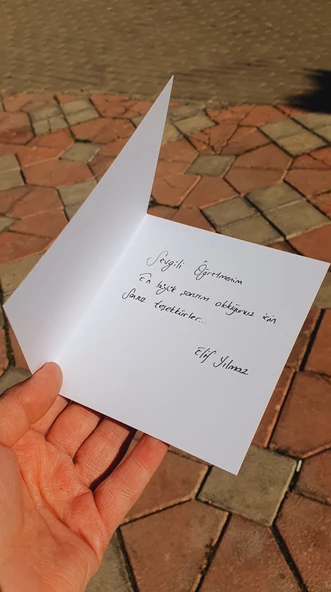 Sevgili Öğretmenim
En büyük şansım olduğunuz için
Sonsuz teşekkürler...
Elif Yılmaz